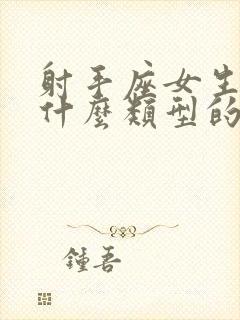 射手座女生
什麼類型的
鍾吾